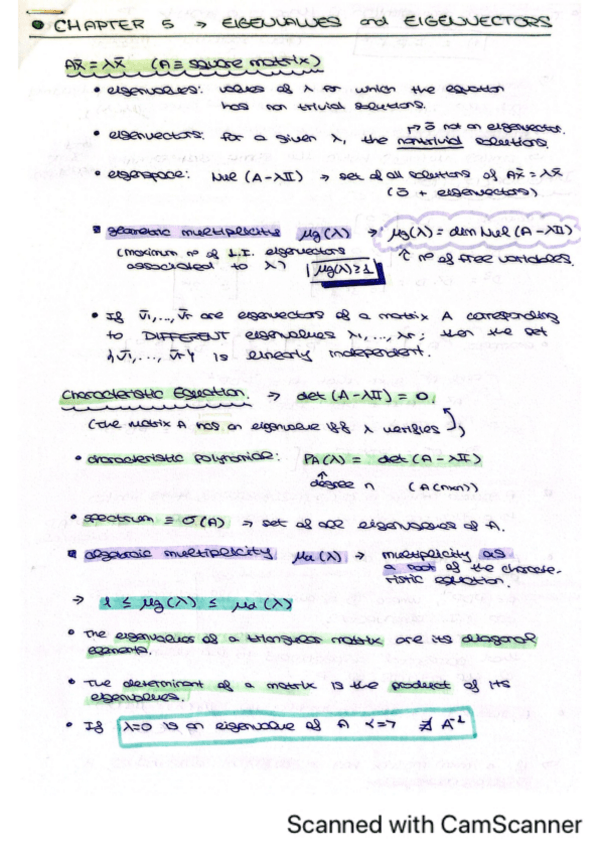 • CHAPTER 5 → EIGENVALUES and EIGENVECTORS
Ax̄ = λx̄ (A ≡ square matrix)
• eigenvalues: values of λ for which the equation
has non trivial solutions.
↱ ō not an eigenvector.
• eigenvectors: for a given λ, the nontrivial solutions.
• eigenspace: Nul (A-λII) → set of all solutions of Ax̄ = λx̄
(ō + eigenvectors)
▪ geometric multiplicity μg(λ) → μg(λ) = dim Nul (A-λII)
(maximum nº of L.I. eigenvectors
associated to λ) μg(λ) ≥ 1
↑ nº of free variables.
• If v̄1,..., v̄r are eigenvectors of a matrix A corresponding
to DIFFERENT eigenvalues λ1,..., λr; then the set
{v̄1,..., v̄r} is linearly independent.
Characteristic Equation. → det (A-λII) = 0.
(The matrix A has an eigenvalue iff λ verifies ⤴)
• characteristic polynomial: PA(λ) = det (A-λII)
↑
degree n (A(nxn))
• spectrum ≡ σ(A) ⇒ set of all eigenvalues of A.
▪ algebraic multiplicity μa(λ) → multiplicity as
a root of the characte-
ristic equation.
⇒ 1 ≤ μg(λ) ≤ μa(λ)
• The eigenvalues of a triangular matrix are its diagonal
elements.
• The determinant of a matrix is the product of its
eigenvalues.
• If λ=0 is an eigenvalue of A <=> ∄ A⁻¹
Scanned with CamScanner